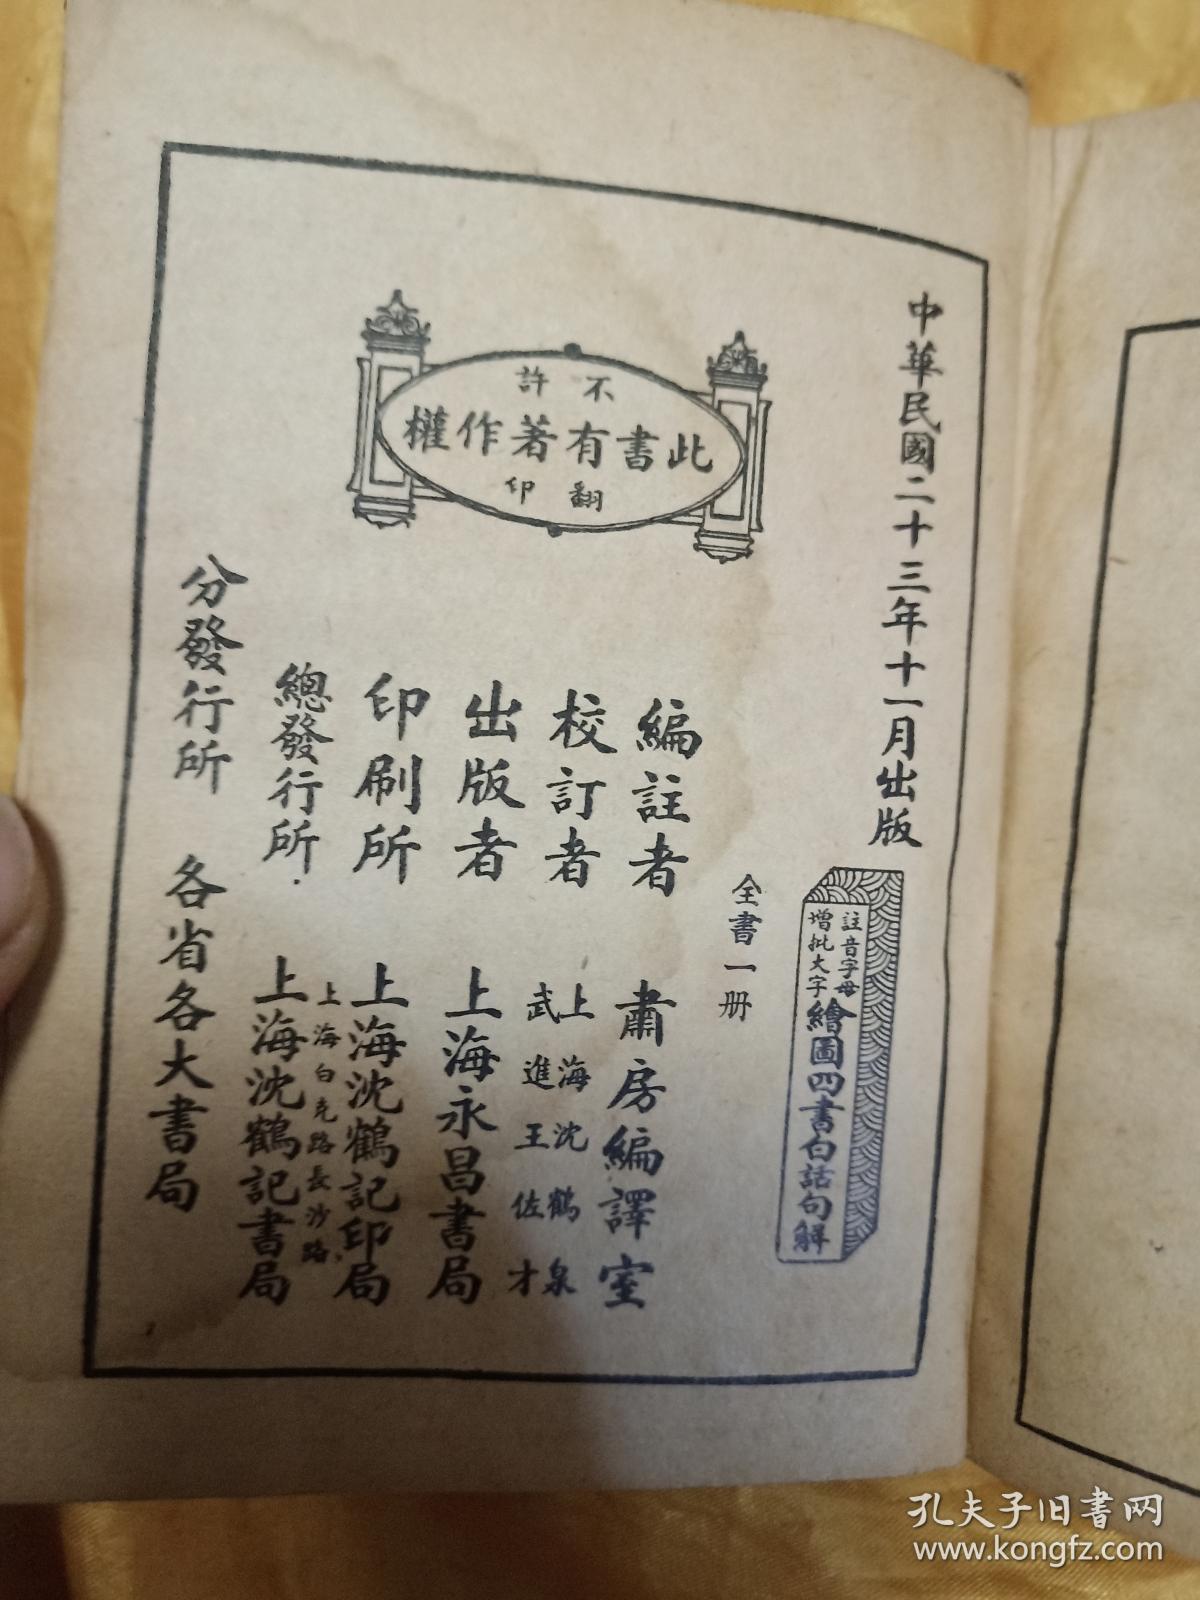 中華民國二十三年十一月出版
註音字母
增批大字
繪圖四書白話句解
全書一册
不許
此書有著作權
翻印
編註者 肅房編譯室
校訂者 上海沈鶴泉
武進王佐才
出版者 上海永昌書局
印刷所 上海沈鶴記印局
上海白克路長沙路
總發行所 上海沈鶴記書局
分發行所 各省各大書局
孔夫子旧书网
www.kongfz.com